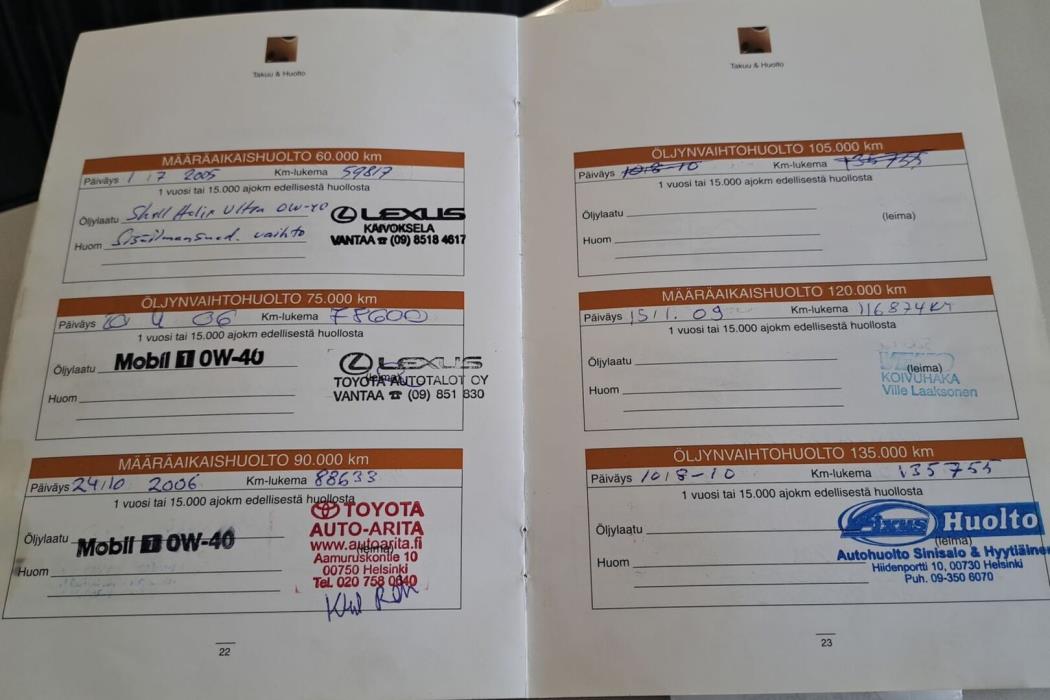 Takuu & Huolto
MÄÄRÄAIKAISHUOLTO 60.000 km
Päiväys 1 7 2005 Km-lukema 59817
1 vuosi tai 15.000 ajokm edellisestä huollosta
Öljylaatu Shell Helix Ultra 0W-40
Huom Sisäilmansuod. vaihto
LEXUS
KAIVOKSELA
VANTAA ☎ (09) 8518 4617
ÖLJYNVAIHTOHUOLTO 75.000 km
Päiväys 20 4 06 Km-lukema 78600
1 vuosi tai 15.000 ajokm edellisestä huollosta
Öljylaatu Mobil 1 0W-40
Huom
(leima)
LEXUS
TOYOTA AUTOTALOT OY
VANTAA ☎ (09) 851 830
MÄÄRÄAIKAISHUOLTO 90.000 km
Päiväys 24.10 2006 Km-lukema 88633
1 vuosi tai 15.000 ajokm edellisestä huollosta
Öljylaatu Mobil 1 0W-40
Huom
(leima)
TOYOTA
AUTO-ARITA
www.autoarita.fi
Aamuruskontie 10
00750 Helsinki
Tel. 020 758 0640
22
Takuu & Huolto
ÖLJYNVAIHTOHUOLTO 105.000 km
Päiväys 10.8-10 Km-lukema 135755
1 vuosi tai 15.000 ajokm edellisestä huollosta
Öljylaatu
(leima)
Huom
MÄÄRÄAIKAISHUOLTO 120.000 km
Päiväys 15 11. 09 Km-lukema 116874 km
1 vuosi tai 15.000 ajokm edellisestä huollosta
Öljylaatu
Huom
(leima)
KOIVUHAKA
Ville Laaksonen
ÖLJYNVAIHTOHUOLTO 135.000 km
Päiväys 10.8-10 Km-lukema 135755
1 vuosi tai 15.000 ajokm edellisestä huollosta
Öljylaatu
Huom
(leima)
Sixus Huolto
Autohuolto Sinisalo & Hyytiäinen
Hiidenportti 10, 00730 Helsinki
Puh. 09-350 6070
23